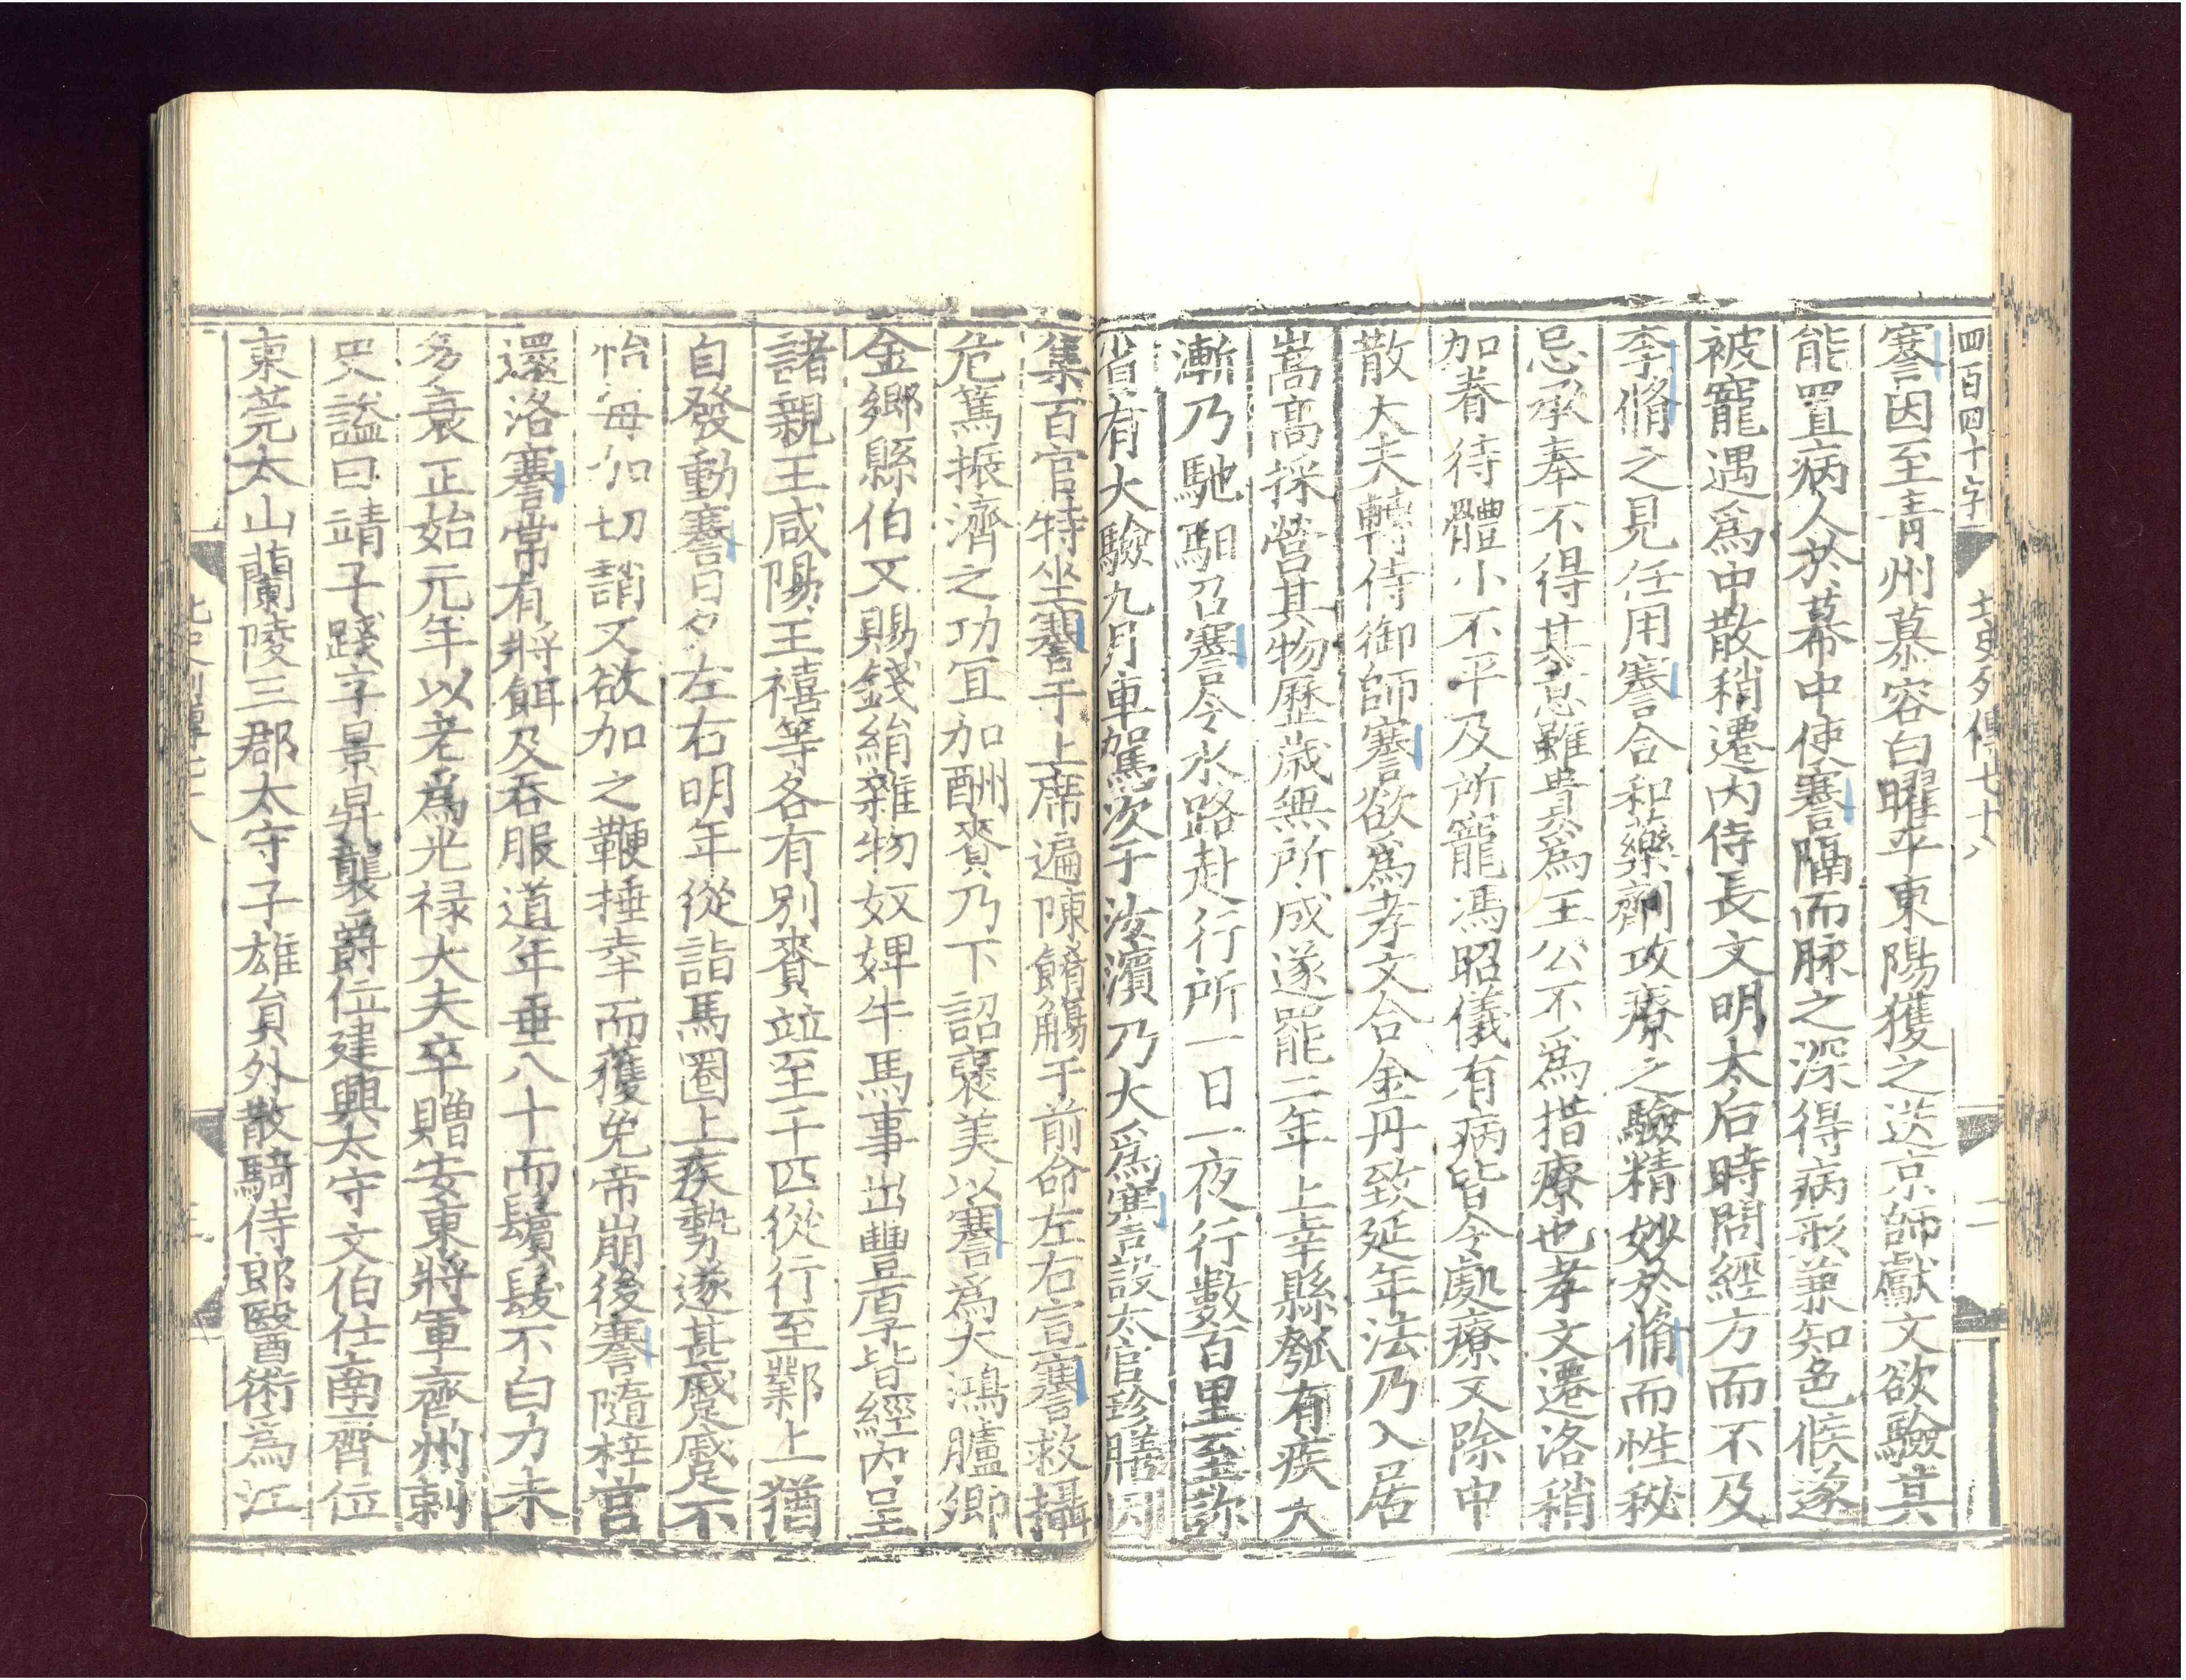 四百四十字
北史列傳七十八
二
謇因至青州慕容白曜平東陽獲之送京師獻文欲驗其
能置病人於幕中使謇隔而脉之深得病形兼知色候遂
被寵遇爲中散稍遷内侍長文明太后時問經方而不及
李脩之見任用謇合和藥劑攻療之驗精妙於脩而性秘
忌承奉不得其意雖貴爲王公不爲措療也孝文遷洛稍
加眷待體小不平及所寵馮昭儀有病皆令處療又除中
散大夫轉侍御師謇欲爲孝文合金丹致延年法乃入居
嵩高採營其物歷歳無所成遂罷二年上幸縣瓠有疾大
漸乃馳馹召謇令水路赴行所一日一夜行數百里至診
省有大驗九月車駕次于汝濱乃大爲謇設太官珍膳因
集百官特坐謇于上席遍陳餚觴于前命左右宣謇救攝
危篤振濟之功宜加酬賚乃下詔襃美以謇爲大鴻臚卿
金鄉縣伯又賜錢絹雜物奴婢牛馬事出豐厚皆經内呈
諸親王咸陽王禧等各有別賚竝至千匹從行至鄴上猶
自發動謇日夕左右明年從詣馬圈上疾勢遂甚慼慼不
怡每加切誚又欲加之鞭捶幸而獲免帝崩後謇隨梓宫
還洛謇常有將餌及吞服道年垂八十而鬢髮不白力未
多衰正始元年以老爲光禄大夫卒贈安東將軍齊州剌
史謚曰靖子踐字景昇襲爵位建興太守文伯仕南齊位
東莞太山蘭陵三郡太守子雄員外散騎侍郎醫術爲江
北史列傳七十八